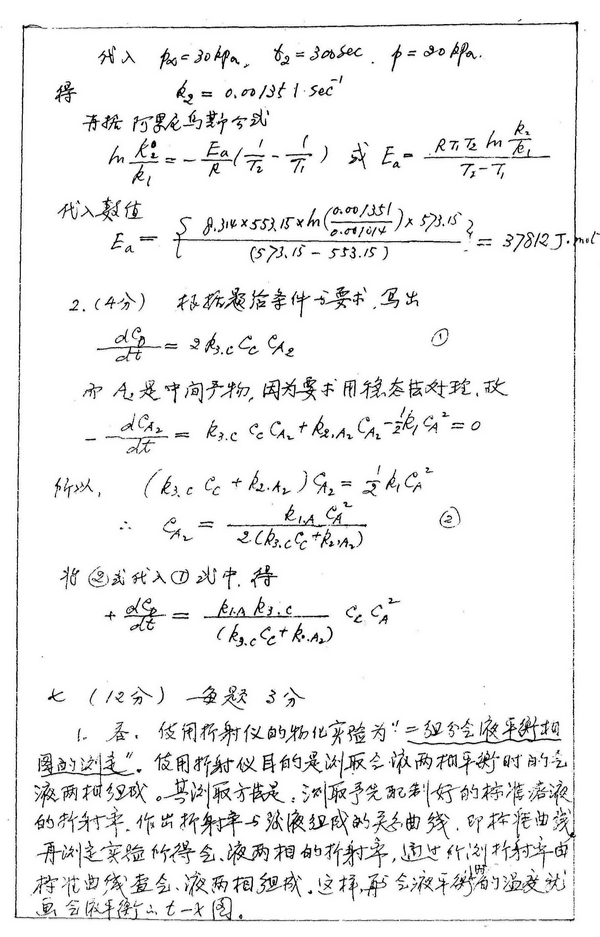 代入 p∞=30kpa, t₂=300sec. p=20kpa.
得 k₂ = 0.001351·sec⁻¹
再据阿累尼乌斯公式
ln k₂/k₁ = -Ea/R (1/T₂ - 1/T₁) 或 Ea = RT₁T₂ ln(k₂/k₁) / (T₂-T₁)
代入数值
Ea = { 8.314×553.15×ln(0.001351/0.001014)×573.15 / (573.15-553.15) } = 37812 J·mol
2.(4分) 根据题给条件与要求,写出
dC_D/dt = 2k₃.c C_C C_A₂ ①
而 A₂ 是中间产物,因为要求用稳态法处理,故
-dC_A₂/dt = k₃.c C_C C_A₂ + k₂,A₂ C_A₂ - ½k₁C_A² = 0
所以, (k₃.c C_C + k₂.A₂) C_A₂ = ½ k₁C_A²
∴ C_A₂ = k₁.A C_A² / 2(k₃.c C_C + k₂,A₂) ②
将②式代入①式中,得
+dC_D/dt = k₁.A k₃.c / (k₃.c C_C + k₂.A₂) C_C C_A²
七 (12分) 每题3分
1. 答:使用折射仪的物化实验为"二组分气液平衡相
图的测定"。使用折射仪目的是测取气液两相平衡时的气
液两相组成。其测取方法是:测取予先配制好的标准溶液
的折射率,作出折射率与溶液组成的关系曲线,即标准曲线
再测定实验所得气、液两相的折射率,通过所测折射率由
标准曲线查气、液两相组成。这样,再气液平衡时的温度就
画气液平衡的t-x图。